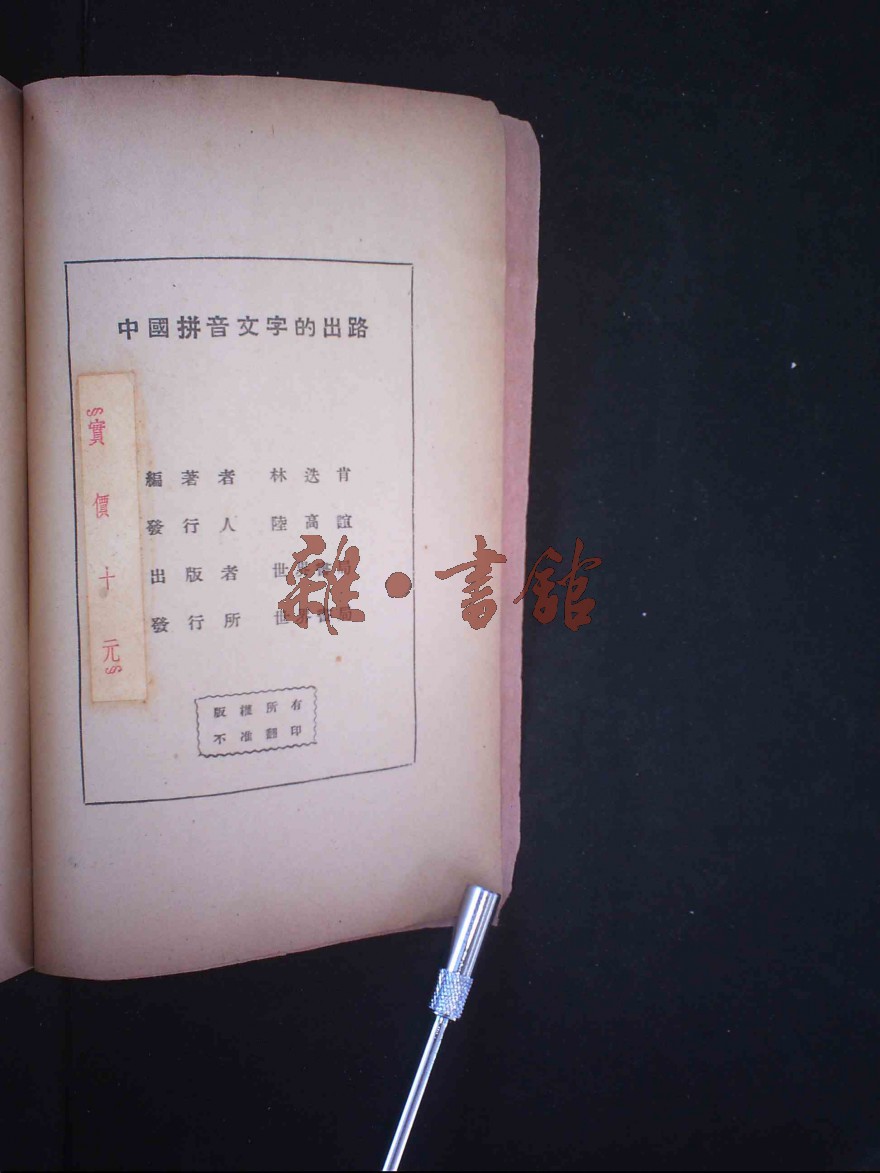 中國拼音文字的出路
編著者 林迭肯
發行人 陸高誼
出版者 世界書局
發行所 世界書局
版權所有
不准翻印
實價十元
雜·書館